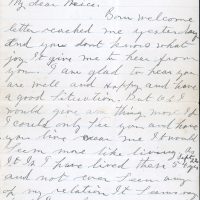 My dear Neice.
Your welcome
letter reached me yesterday
and you dont know what
joy It give me to hear from
you. I am glad to hear you
are well and Happy and have
a good Situation. But Oh I
would give any thing more If
I could only See you and have
you live near me It would
Seem more like living
It Is I have lived these
and not even seen any
of my relation It Seams